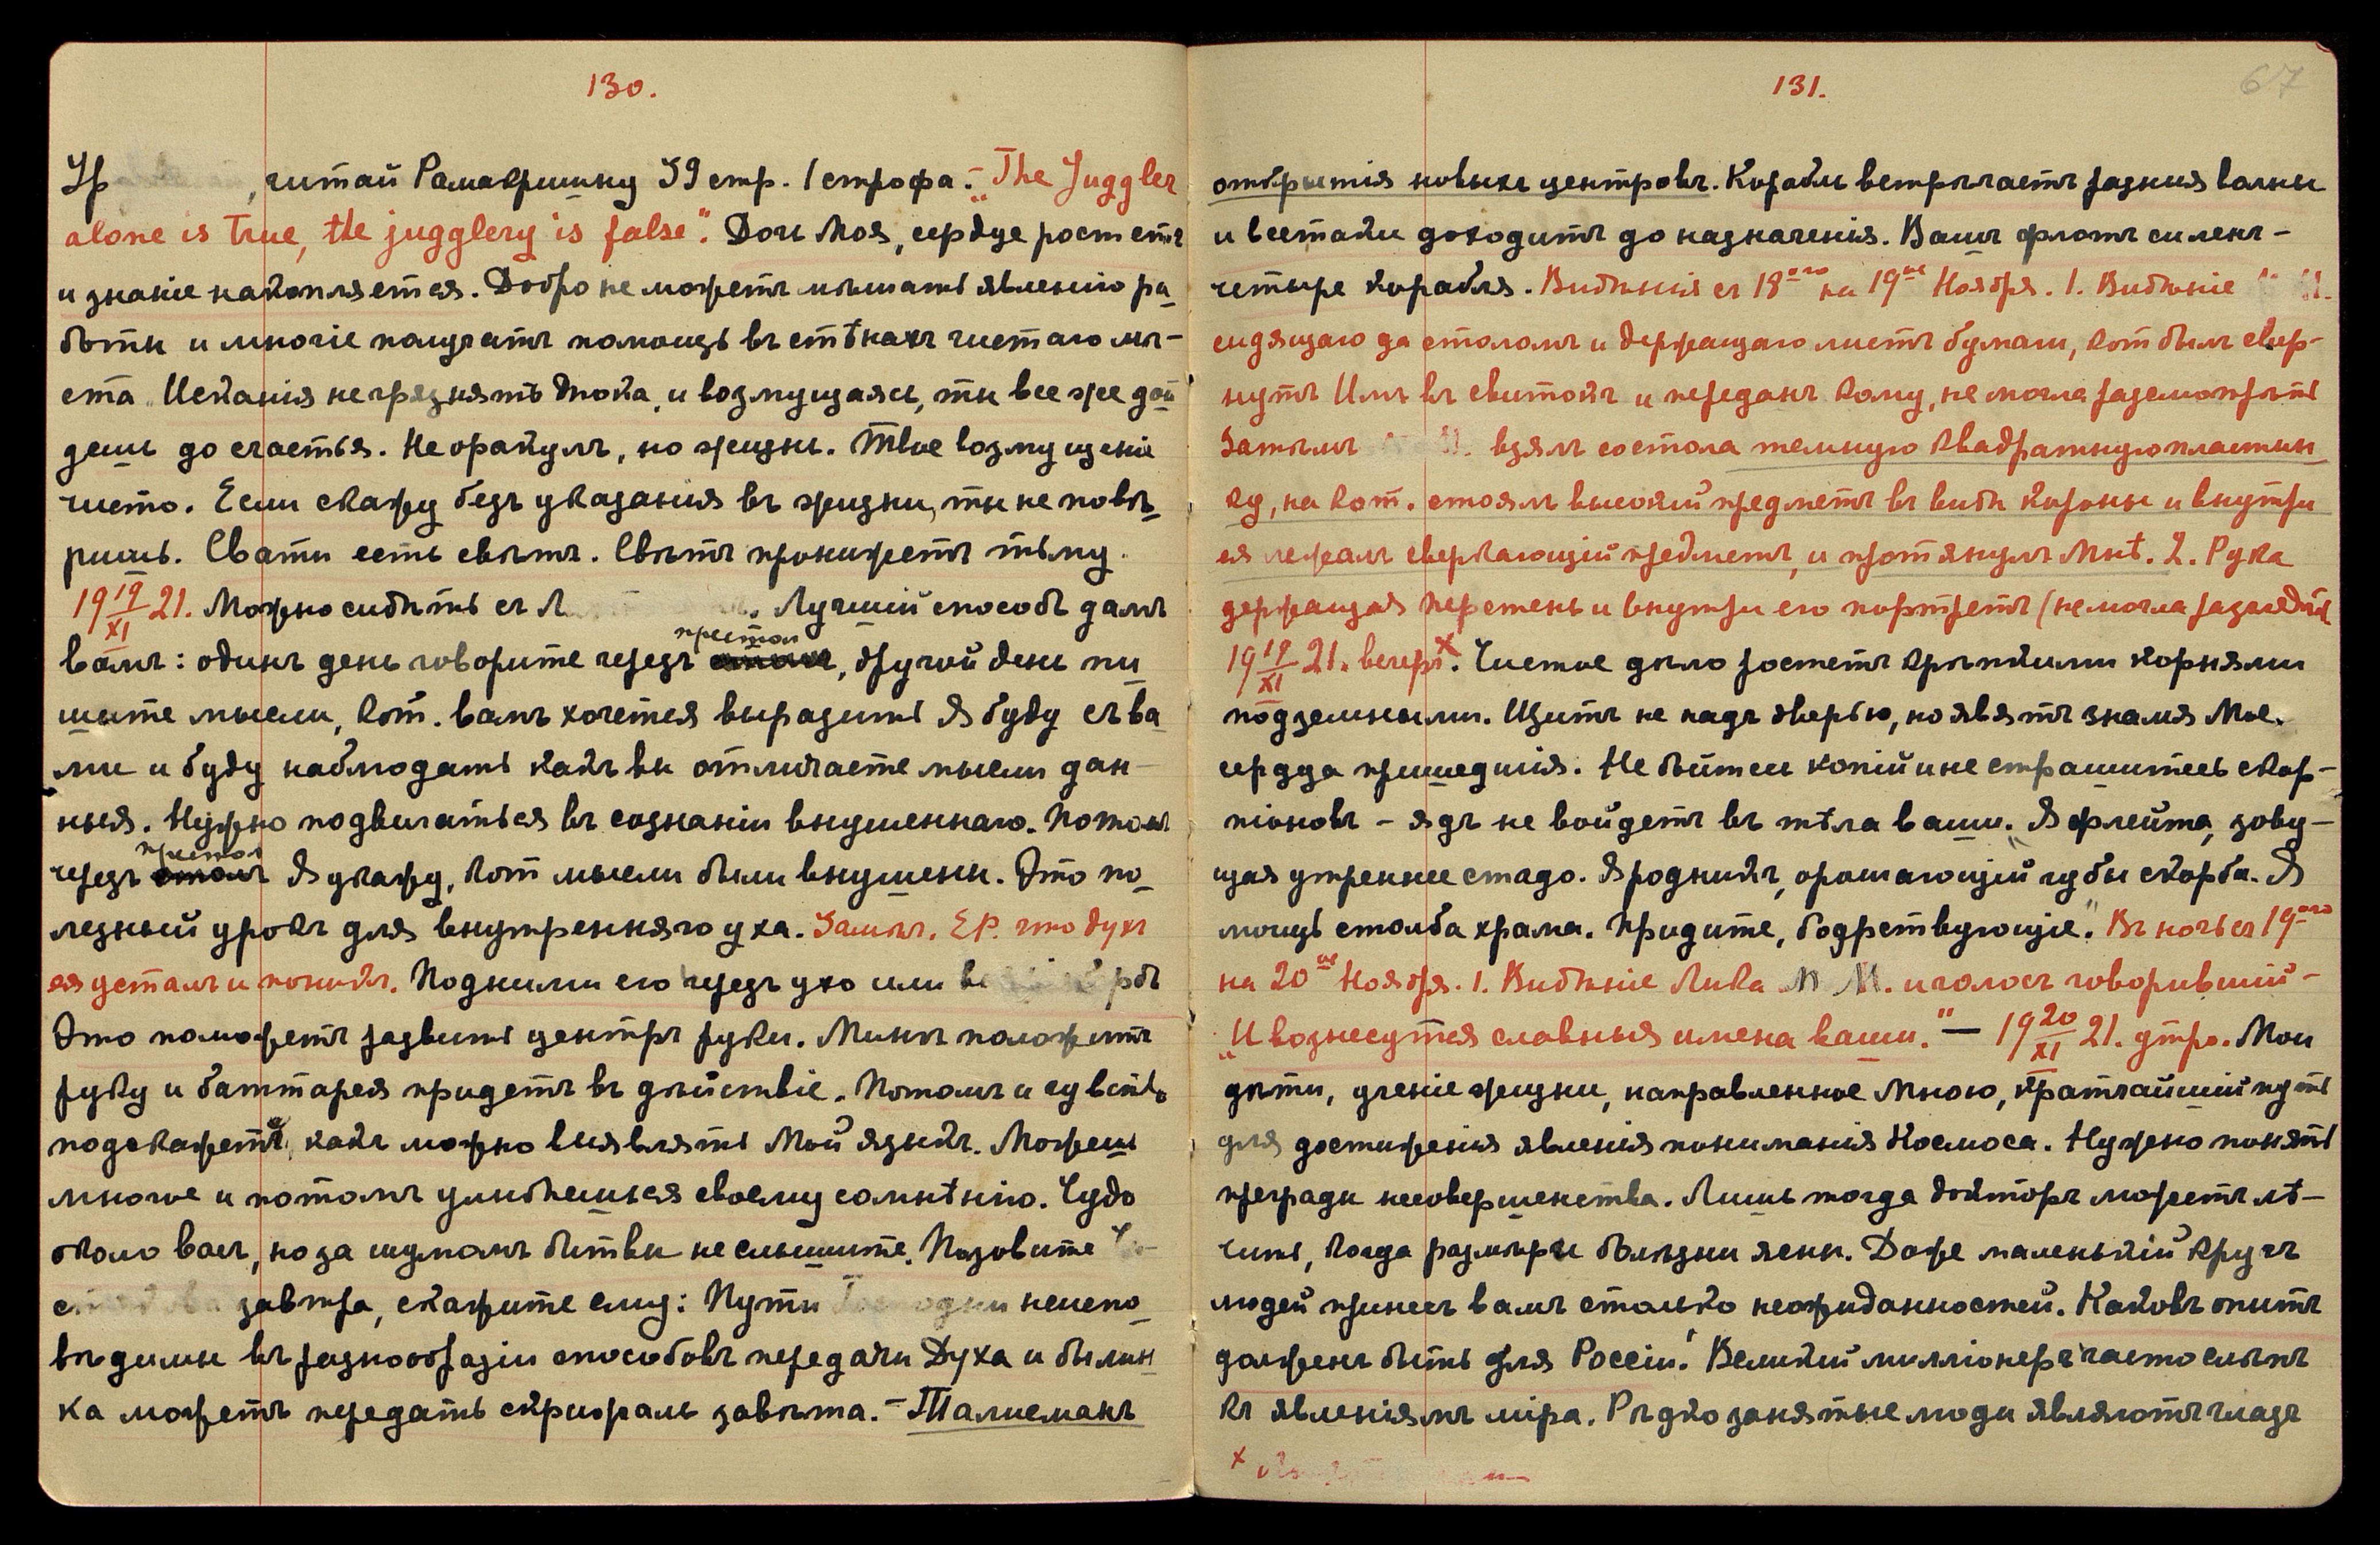 130.
Ур , читай Рамакришну 59 стр. 1 строфа. – „The Juggler
alone is true, the jugglery is false“. Дочь Моя, сердце ростетъ
и знаніе накопляется. Добро не можетъ мѣшать явленію ра_
боты и многіе получатъ помощь въ стѣнахъ чистаго мѣ-
ста. Исканія не грязнятъ тока, и возмущаясь, ты все же дой
дешь до счастья. Не оракулъ, но жизнь. Твое возмущеніе
чисто. Если скажу безъ указанія въ жизни, ты не повѣ_
ришь. Свати есть свѣтъ. Свѣтъ пронижетъ тьму.
19 19/XI 21. Можно сидѣть съ Л . Лучшій способъ далъ
вамъ: одинъ день говорите черезъ престол, другой день пи_
шите мысли, кот. вамъ хочется выразить Я буду съ ва_
ми и буду наблюдать какъ вы отличаете мысли дан-
ныя. Нужно подвигаться въ сознаніи внушеннаго. Потомъ
черезъ престол Я укажу, кот мысли были внушены. Это по_
лезный урокъ для внутренняго уха. Замѣч. Е.Р. что духъ
ея усталъ и поникъ. Подними его черезъ ухо или
Это поможетъ развить центръ руки. Мингъ положитъ
руку и баттарея придетъ въ дѣйствіе. Потомъ и чувств.
подскажетъ, какъ можно выявлять Мой языкъ. Можешь
многое и потомъ улыбнешься своему сомнѣнію. Чудо
около васъ, но за шумомъ битвы не слышите. Позовите
завтра, скажите ему: Пути неиспо_
вѣдимы въ разнообразіи способовъ передачи Духа и былин_
ка можетъ передать скрижаль завѣта. – Талисманъ
131.
67
открытія новыхъ центровъ. Корабль встрѣчаетъ разныя волны
и всетаки доходитъ до назначенія. Вашъ флотъ силенъ –
четыре корабля. Видѣнія съ 18ого на 19ое Ноября. 1. Видѣніе
сидящаго за столомъ и держащаго листъ бумаги, кот былъ свер-
нутъ Имъ въ свитокъ и переданъ кому, не могла разсмотрѣть
Затѣмъ взялъ со стола темную квадратную пластин_
ку, на кот. стоялъ высокій предметъ въ видѣ короны и внутри
ея лежалъ сверкающій предметъ, и протянулъ Мнѣ. 2. Рука
держащая перстень и внутри его портретъ (не могла разглядѣть
19 19/XI 21. вечеръ x. Чистое дѣло ростетъ крѣпкими корнями
подземными. Щитъ не надъ дверью, но явятъ знамя Мое.
сердца пришедшія. Не бойтесь копій и не страшитесь скор-
піоновъ – ядъ не войдетъ въ тѣла ваши. „Я флейта, зову-
щая утреннее стадо. Я родникъ, орошающій губы скорби. Я
мощь столба храма. Придите, бодрствующіе.“ Въ ночь съ 19ого
на 20ое Ноября. 1. Видѣніе Лика М. М. и голосъ говорившій –
„И вознесутся славныя имена ваши.“ – 19 20/XI 21. утро. Мои
дѣти, ученіе жизни, направленное Мною, кратчайшій путь
для достиженія явленія пониманія Космоса. Нужно понять
преграды несовершенства. Лишь тогда докторъ можетъ лѣ-
чить, когда размѣры болѣзни ясны. Даже маленькій кругъ
людей принесъ вамъ столько неожиданностей. Каковъ опытъ
долженъ быть для Россіи! Великій милліонеръ часто слѣпъ
къ явленіямъ міра. Рѣдко занятые люди являютъ глазъ
x